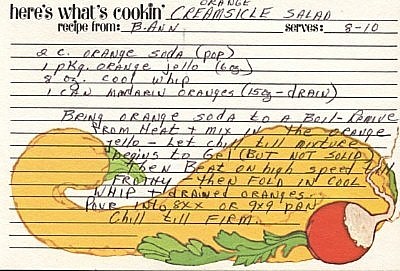 ORANGE
here's what's cookin' CREAMSICLE SALAD
recipe from: B. ANN serves: 8-10
2 c. ORANGE SODA (POP)
1 pkg. ORANGE Jello (6oz)
8 oz. COOL WHIP
1 CAN MANDARIN ORANGES (15oz - DRAIN)
BRING ORANGE SODA TO A BOIL - REMOVE
FROM HEAT + MIX IN THE ORANGE
jello - LET CHILL TILL MIXTURE
BEGINS TO GEL (BUT NOT SOLID)
THEN BEAT ON HIGH SPEED TILL
FROTHY - THEN FOLD IN COOL
WHIP + DRAINED ORANGES.
POUR INTO 8X8 OR 9X9 PAN
CHILL TILL FIRM.